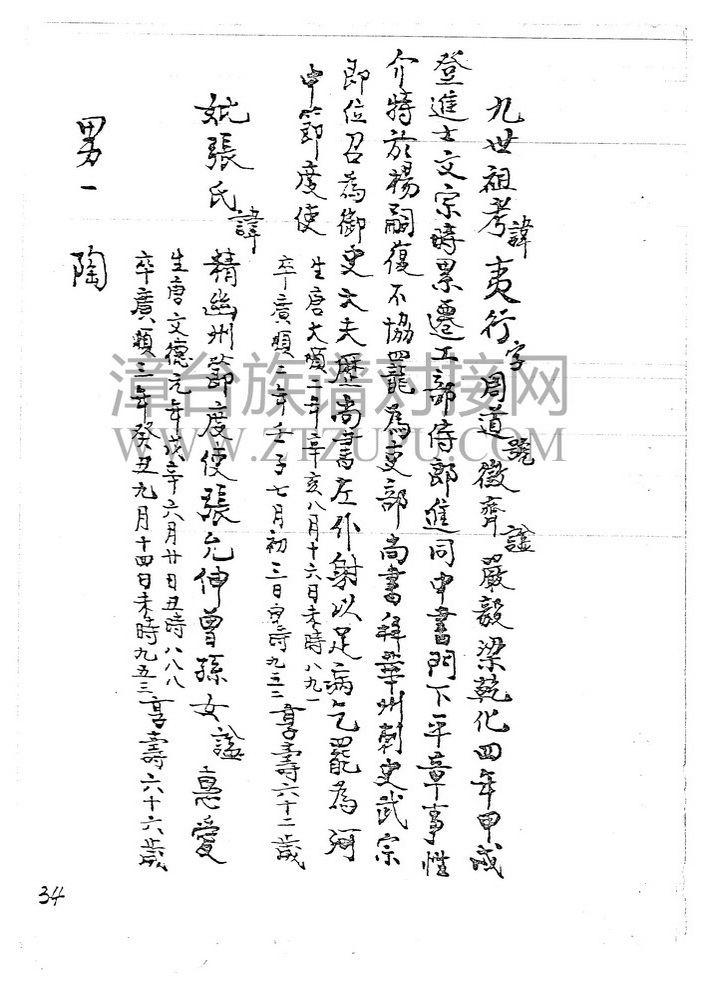 九世祖考諱夷行字周道號徵齊諡嚴毅梁乾化四年甲戌
登進士文宗時累遷工部侍郎進同中書門下平章事性
介特於楊嗣復不協罷為吏部尚書拜華州刺史武宗
即位召為御史大夫歷尚書左仆射以足病乞罷為河
中節度使
生唐大順二年辛亥八月十六日未時八九一
卒廣順二年壬子七月初三日寅時九五二
享壽六十二歲
妣張氏諱精幽州節度使張允伸曾孫女諡惠愛
生唐文德元年戊辛六月廿日丑時八八八
卒廣順三年癸丑九月十四日未時九五三
享壽六十六歲
男一 陶
34
漳台族谱对接网
WWW.ZTZUPU.COM